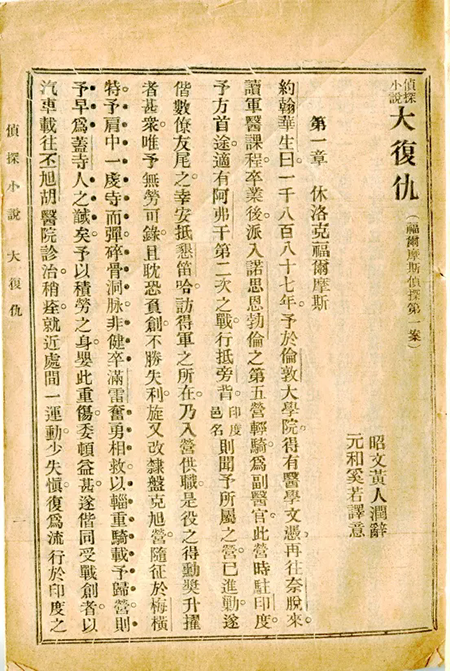 偵探小說 大復仇（福爾摩斯偵探第一案）
昭文黃人潤辭
元和奚若譯意
第一章 休洛克福爾摩斯
約翰華生曰。一千八百八十七年。予於倫敦大學院。得有醫學文憑。再往奈脫來。
讀軍醫課程。卒業後。派入諾思恩勃倫之第五營輕騎。爲副醫官。此營時駐印度。
予方首途。適有阿弗干第二次之戰。行抵旁背。印度邑名則聞予所屬之營。已進勦。遂
偕數僚友尾之。幸安抵懇笛哈。訪得軍之所在。乃入營供職。是役之得勳奬升擢
者甚衆。唯予無勞可錄。且耽恐負創。不勝失利。旋又改隸盤克旭營。隨征於梅橫
特。予肩中一虔寺而彈。碎骨洞脉。非健卒滿雷奮勇相救。以輜重騎載予歸營。則
予早爲蓋寺人之馘矣。予以積勞之身。嬰此重傷。委頓益甚。遂偕同受戰創者。以
汽車載往丕旭胡醫院診治。稍痊。就近處間一運動。少失愼。復爲流行於印度之
偵探小說 大復仇